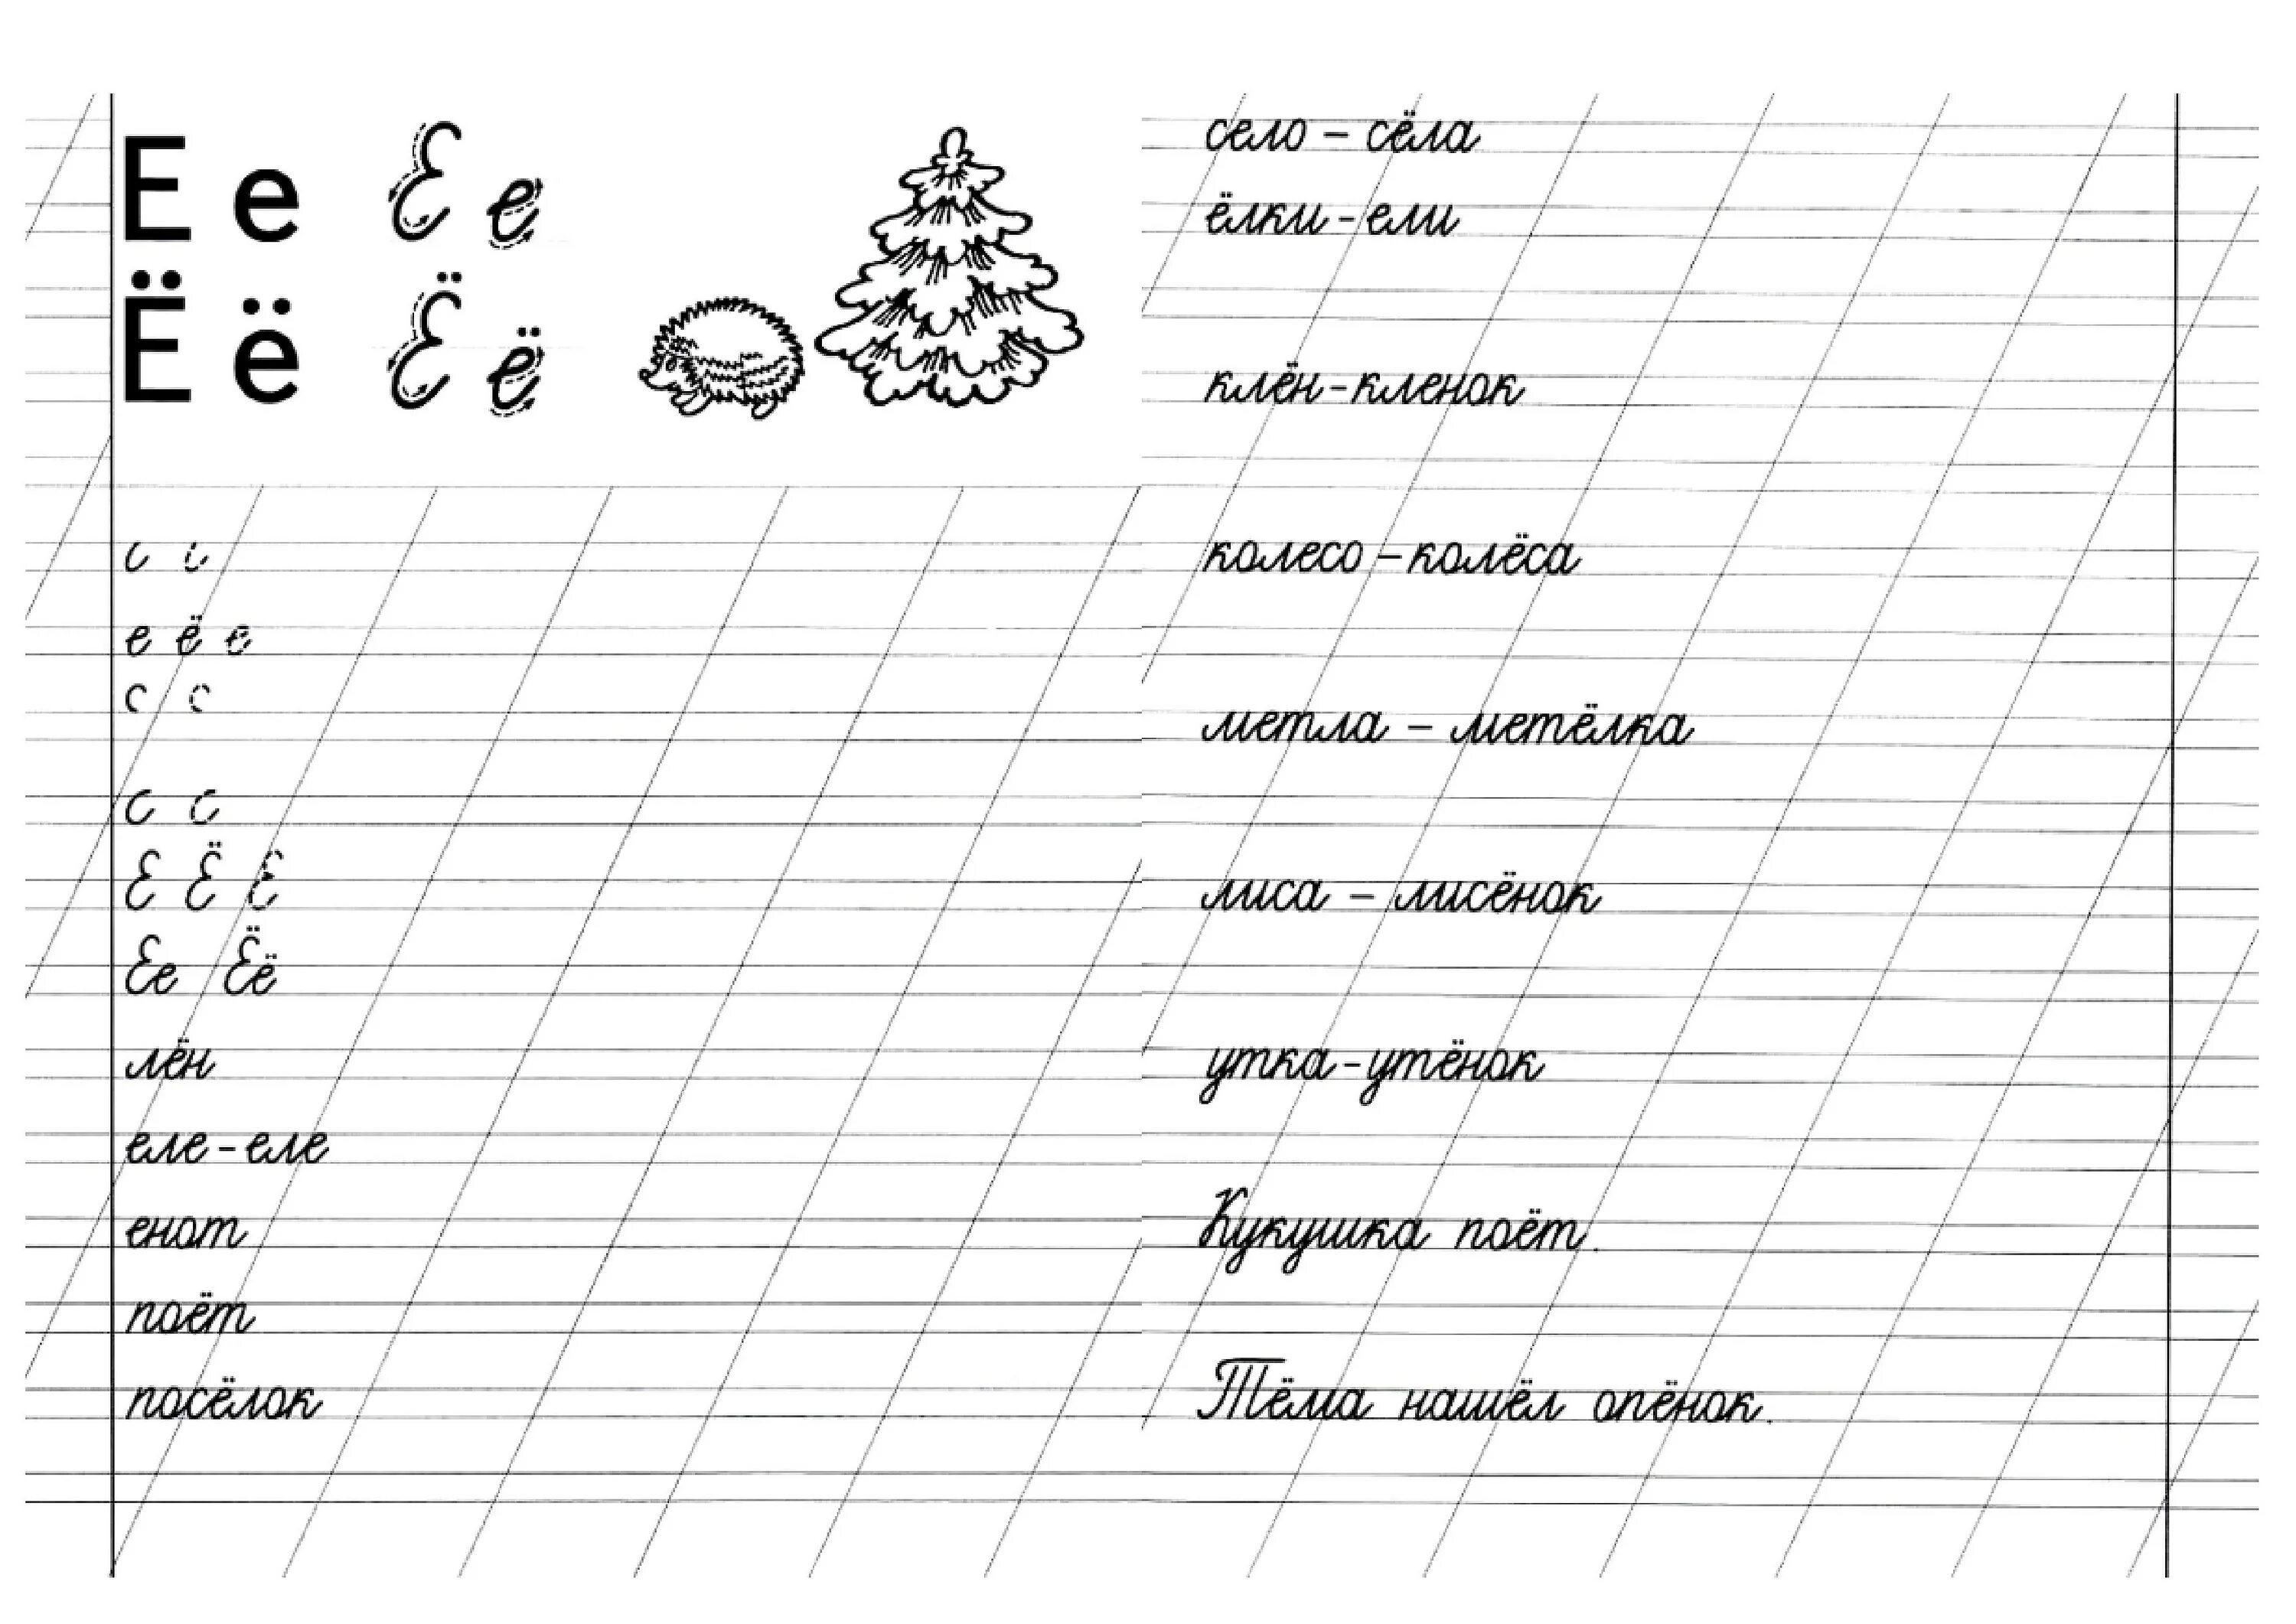 Е е Е е
Ё ё Ё ё
е ё е
с с
с с
Е Ё Е
Ее Ёё
лён
еле-еле
енот
поёт
посёлок
село – сёла
ёлки-ели
клён-кленок
колесо – колёса
метла – метёлка
лиса – лисёнок
утка-утёнок
Кукушка поёт.
Тёма нашёл опёнок.